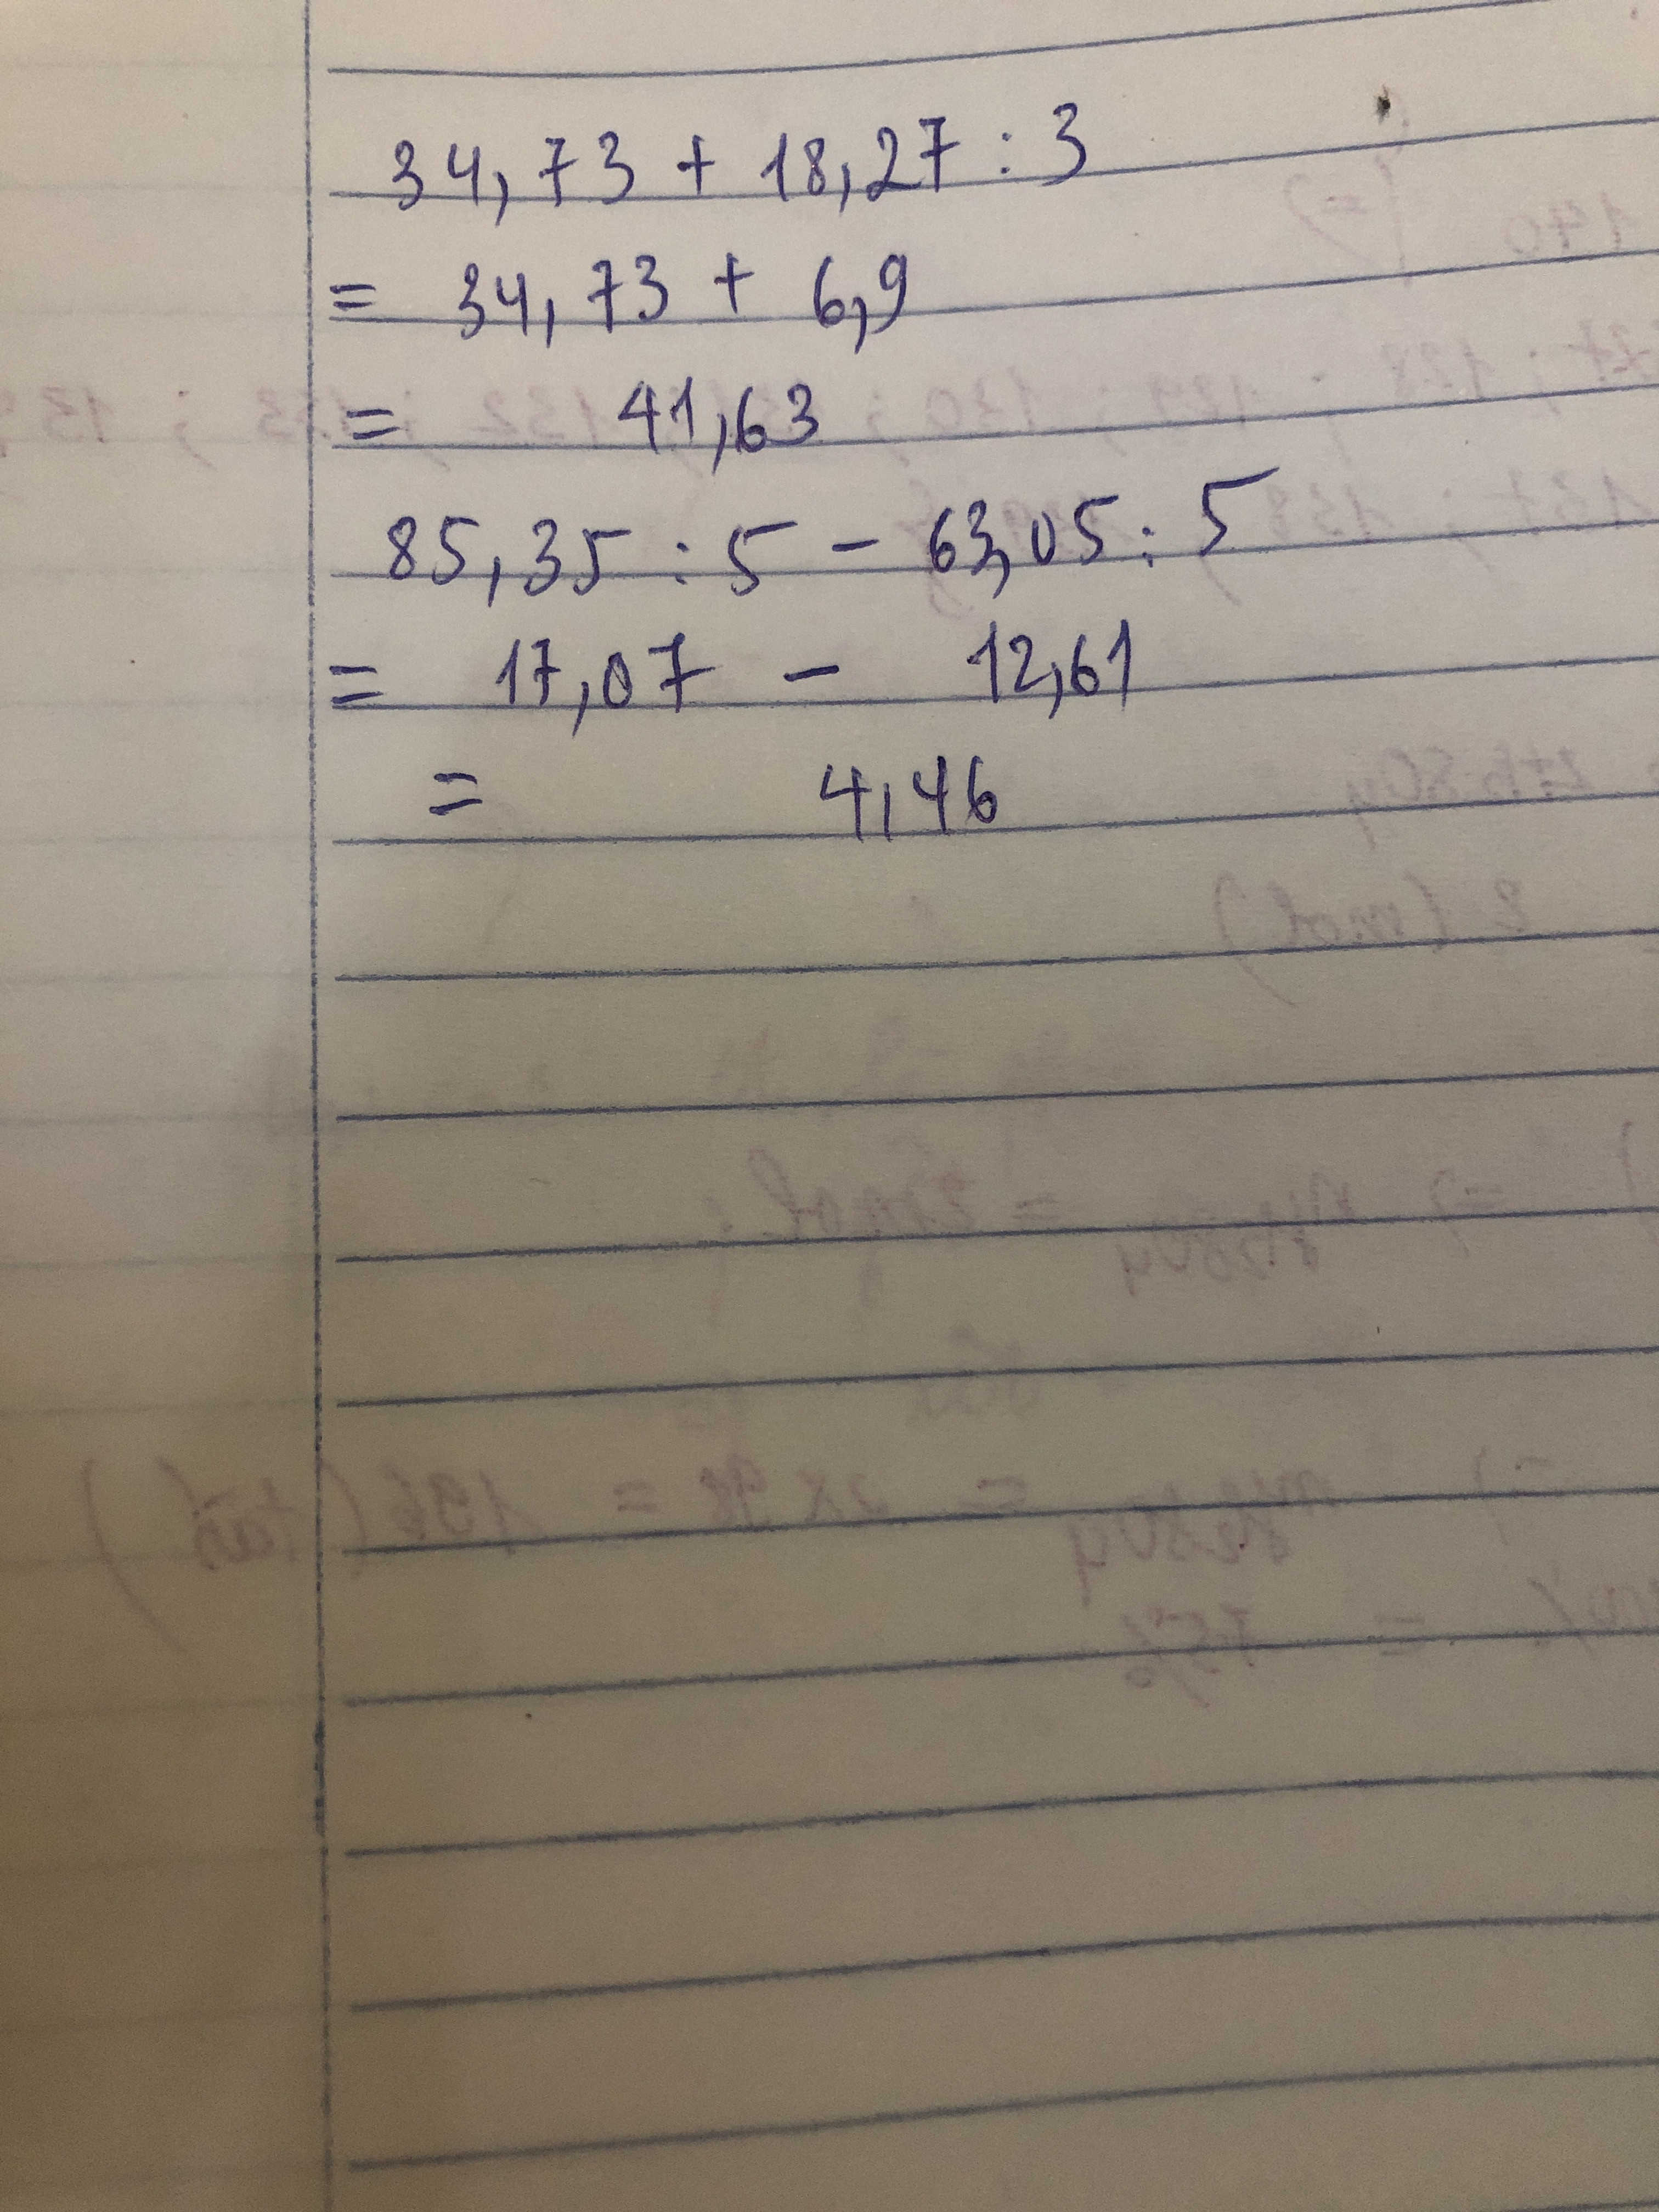 34,73 + 18,27 : 3
= 34,73 + 6,9
= 41,63
85,35 : 5 - 63,05 : 5
= 17,07 - 12,61
= 4,46